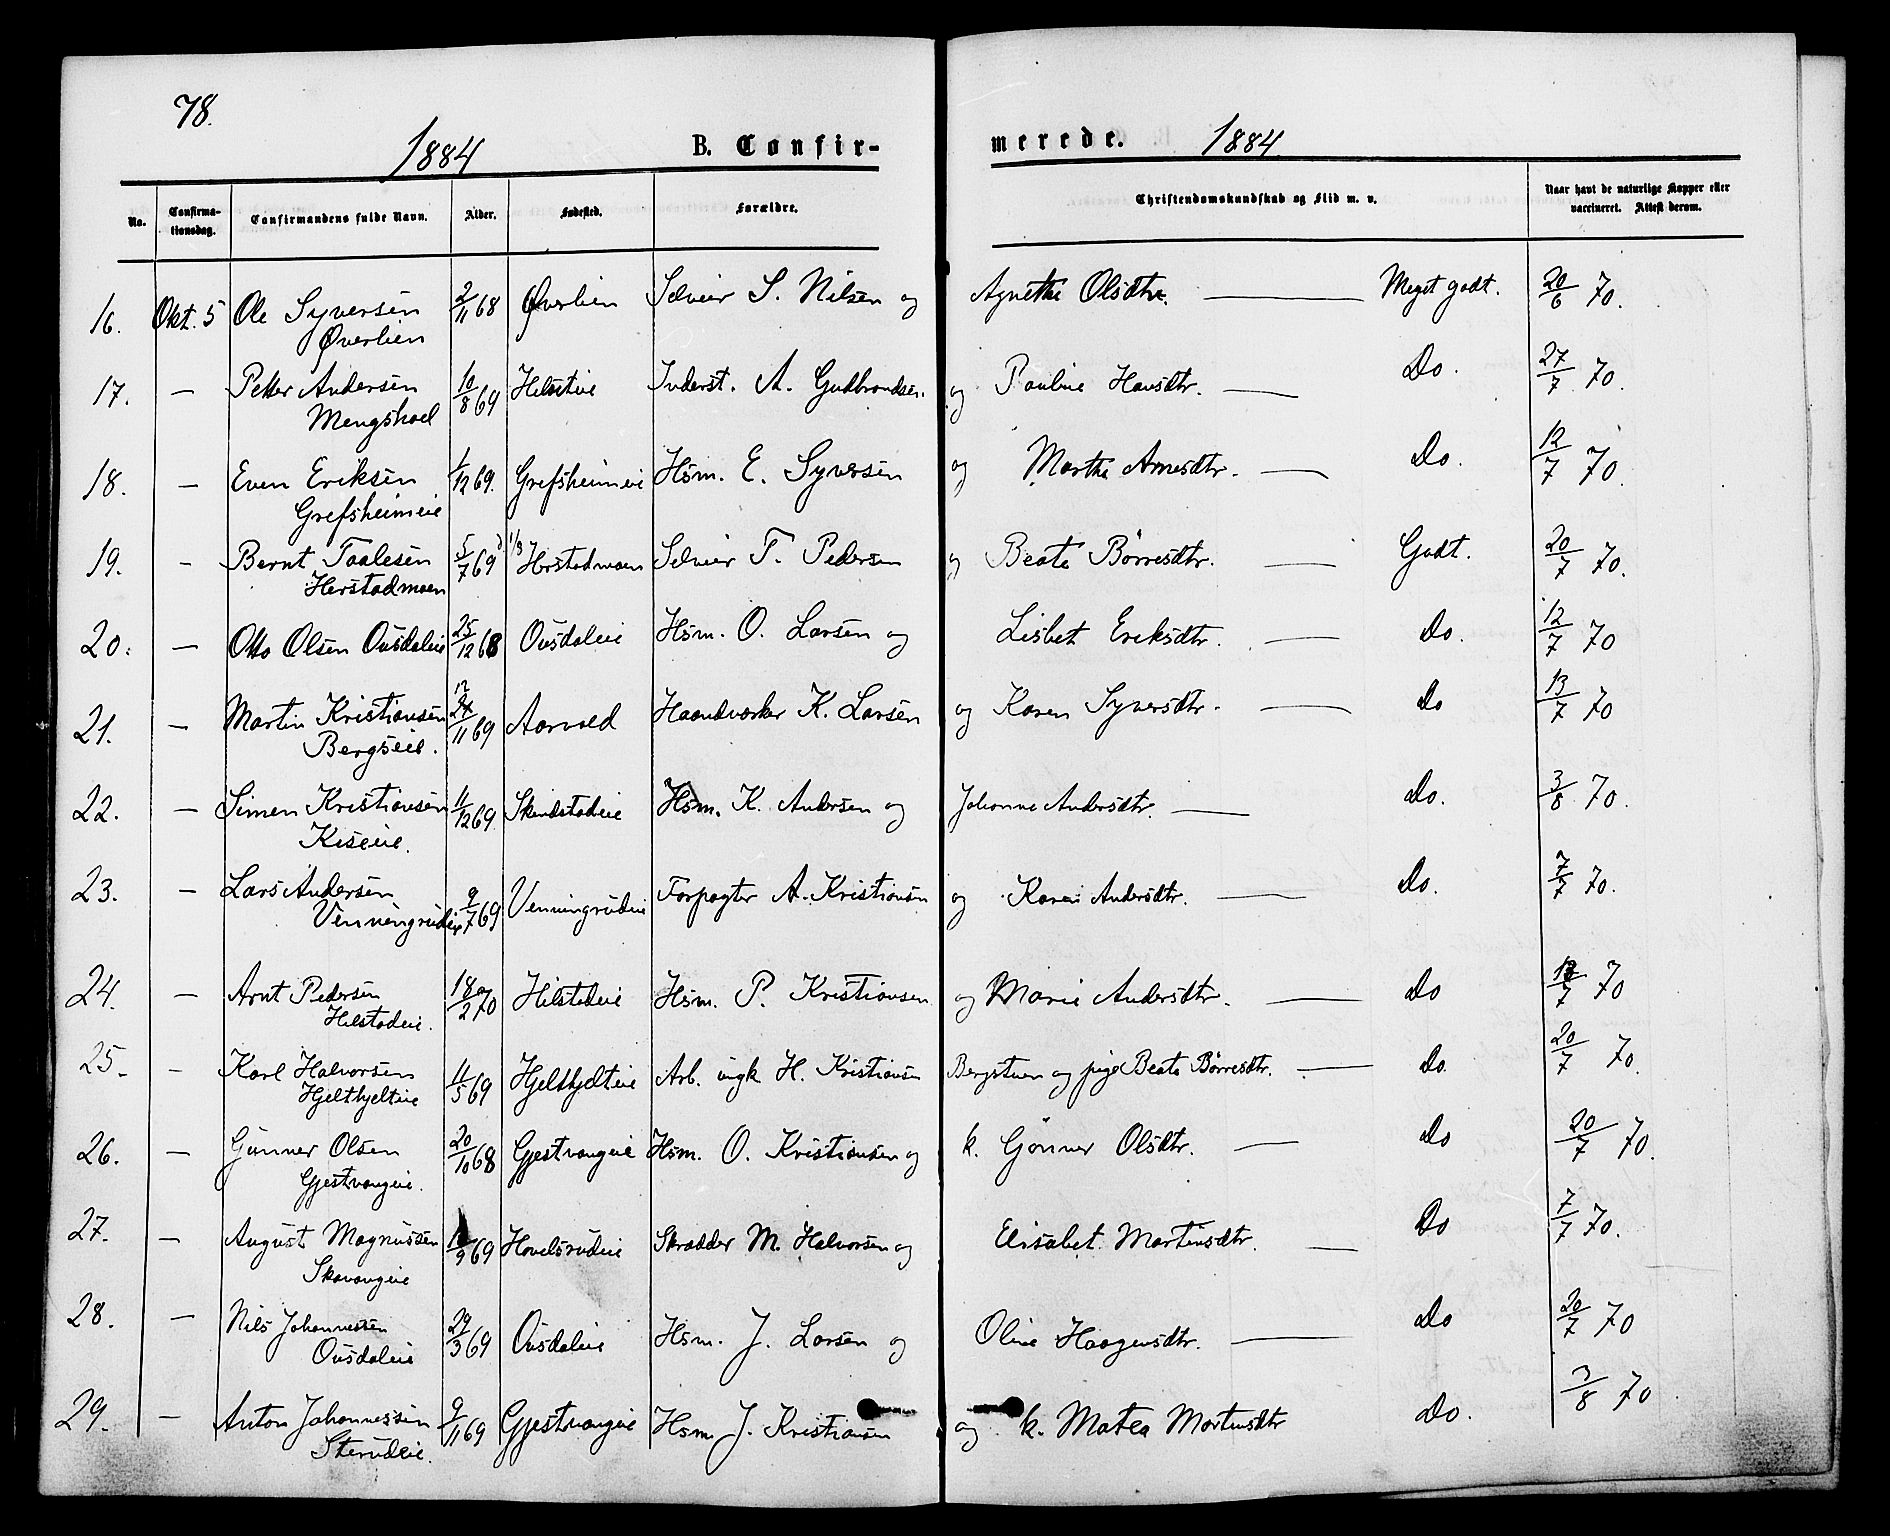 78.
1884 B. Confir- merede. 1884
No. Confirma-tionsdag. Confirmandens fulde Navn. Alder. Fødested. Forældre. Christendomskundskab og Flid m. v. Naar havt de naturlige Kopper eller vaccineret. Attest derom.
16. Okt. 5 Ole Syversen 2/11 68 Øverlien Selveier S. Nilsen og Agnethe Olsdtr. — Meget godt. 20/6 70.
Øverlien
17. — Petter Andersen 10/8 69 Inderst. A. Gudbrandsen. og Pauline Hansdtr. — Do. 27/7 70.
Mengshoel
18. — Even Eriksen 1/12 69. Grefsheimeie Hsm. E. Syversen og Marthe Arnesdtr. — Do. 12/7 70.
Grefsheimeie
19. — Bernt Taalesen 5/7 69 Herstadmoen Selveier T. Pedersen og Beate Børresdtr. — Godt. 20/7 70.
Herstadmoen
20. — Otto Olsen Ousdaleie 25/12 68 Ousdaleie Hsm. O. Larsen og Lisbet Eriksdtr. — Do. 12/7 70
21. — Martin Kristiansen /11 69 Aarveld Haandværker K. Larsen og Karen Syversdtr. — Do 13/7 70
Bergseie.
22. — Simen Kristiansen 11/12 69. Skindstadeie Hsm. K. Andersen og Johanne Andersdtr. — Do. 3/8 70.
Kiseie.
23. — Lars Andersen 9/7 69 Venningrudeie Forpagter A. Kristiansen og Karen Andersdtr. — Do. 7/7 70.
Venningrudeie
24. — Arnt Pedersen 18/2 70 Helstadeie Hsm. P. Kristiansen og Marie Andersdtr. — Do /7 70
Helstadeie.
25. — Karl Halvorsen 11/5 69 Hjelthjelteie Arb. ungk H. Kristiansen Bergstuen og pige Beate Børresdtr. — Do. 20/7 70.
Hjelthjelteie
26. — Gunner Olsen 20/10 68 Gjestvangeie Hsm. O. Kristiansen og k. Gønner Olsdtr. — Do 20/7 70.
Gjestvangeie.
27. — August Magnussen /9 69 Hovelsrudeie Skrædder M. Halvorsen og Elisabet Martinsdtr. — Do 7/7 70.
Skavangeie
28. — Nils Johannessen 29/3 69 Ousdaleie Hsm. J. Larsen og Oline Haagensdtr. — Do 20/7 70
Ousdaleie
29. — Anton Johannessen 9/11 69 Gjestvangeie Hsm. J. Kristiansen og k. Matea Mortensdtr Do. 3/8 70
Sterudeie.